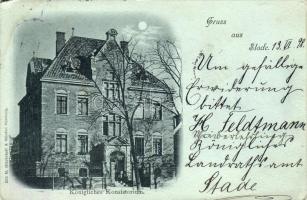 Gruss
aus
Stade, 13. VI. 98
Um gefällige
Erwiderung
bittet
H. Feldtmann
Königliches
Landratsamt
Stade
Königliches Konsistorium.